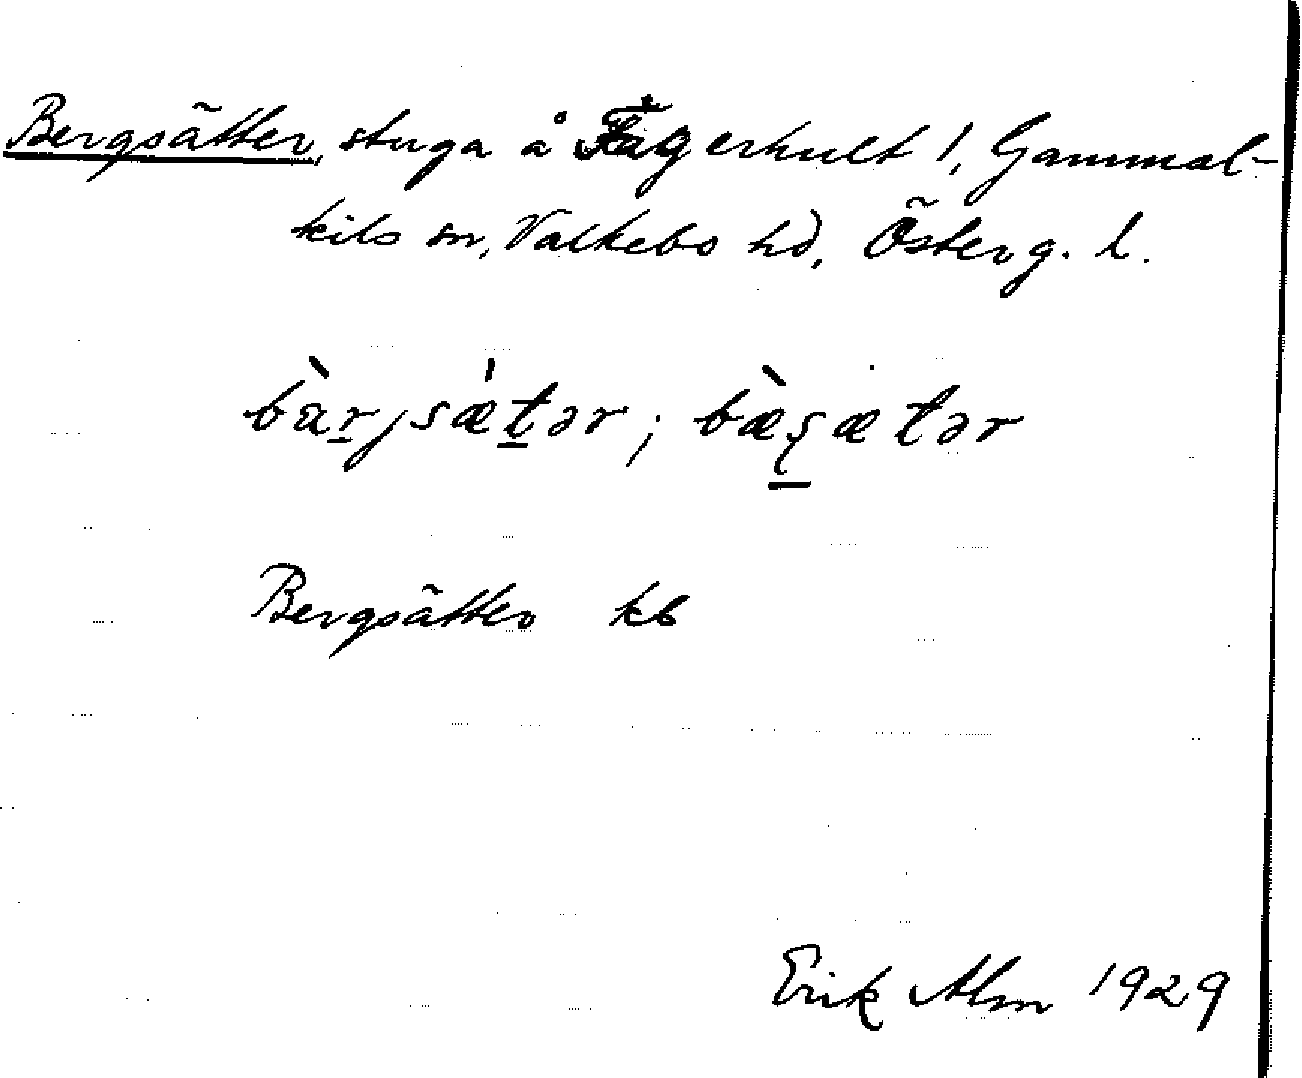 Bergsätter, stuga å Fagerhult 1, Gammal-
kils sn, Valkebo hd, Österg. l.
bàrjsæ̀tər; bæ̀ʂætər
Bergsätter kb
Erik Alm 1929